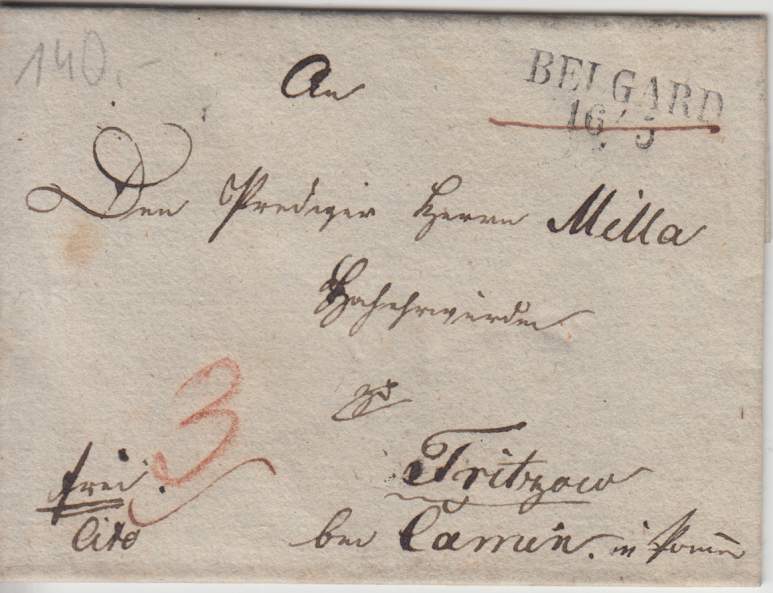 140.-
BELGARD
16/5
An
Den Prediger Herrn Milla
Hochehrwürden
zu
3
frei.
Tritzow
Cito
bei Camin. in Pomm